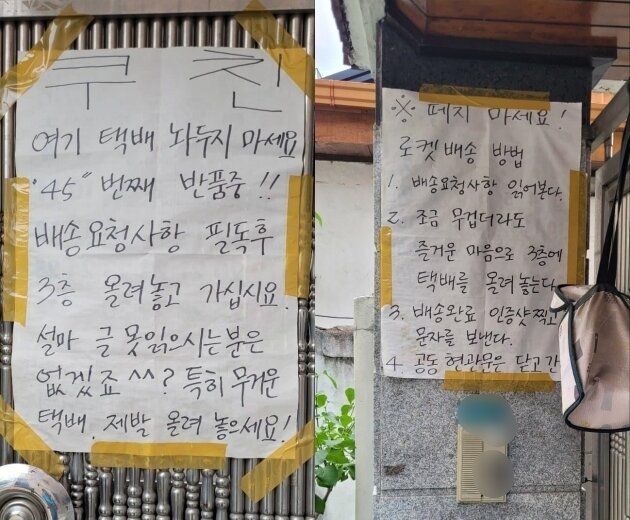 쿠 친
여기 택배 놔두지 마세요
"45" 번째 반품중 !!
배송요청사항 필독후
3층 올려놓고 가십시요.
설마 글 못읽으시는분은
없겠죠 ^^? 특히 무거운
택배. 제발 올려 놓으세요!
※ 떼지 마세요!
로켓배송 방법
1. 배송요청사항 읽어본다.
2. 조금 무겁더라도
즐거운 마음으로 3층에
택배를 올려 놓는다
3. 배송완료 인증샷찍고
문자를 보낸다.
4. 공동 현관문은 닫고 간